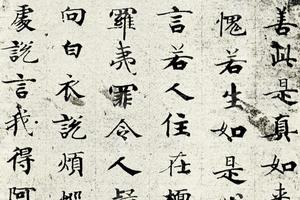 善此是真如來
愧若生如是
言若人住在
羅夷罪令人疑
向白衣說煩惱
處說言我得阿